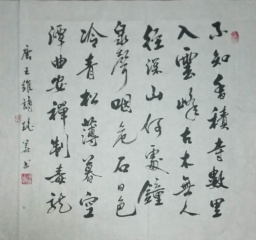 不知香積寺數里
入雲峰古木無人
徑深山何處鐘
泉聲咽危石日色
冷青松薄暮空
潭曲安禪制毒龍
唐王維詩